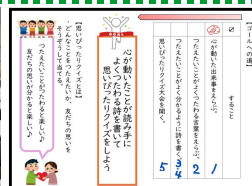 ゴールへの道
すること
心が動いた出来事をえらぶ。
1
つたえたいことがよくつたわる言葉をえらぶ。
2
つたえたいことがよく分かるように詩を書く。
3
4
思いぴったりクイズ大会を開く。
5
心が動いたことが読み手に
よくつたわる詩を書いて
思いぴったりクイズをしよう
【思いぴったりクイズとは】
・どんなことをつたえたいか、友だちの思いを
それぞれ当てる
つたえたいことがつたわると楽しい♪
友だちの思いが分かると楽しい♪